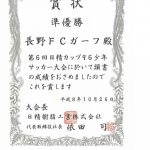 賞状
準優勝
長野FCガーフ殿
第6回日精カップ争奪少年
サッカー大会に於いて頭書
の成績をおさめましたので
これを賞します
平成9年10月26日
大会長
日精樹脂工業株式会社
代表取締役社長 依田 司